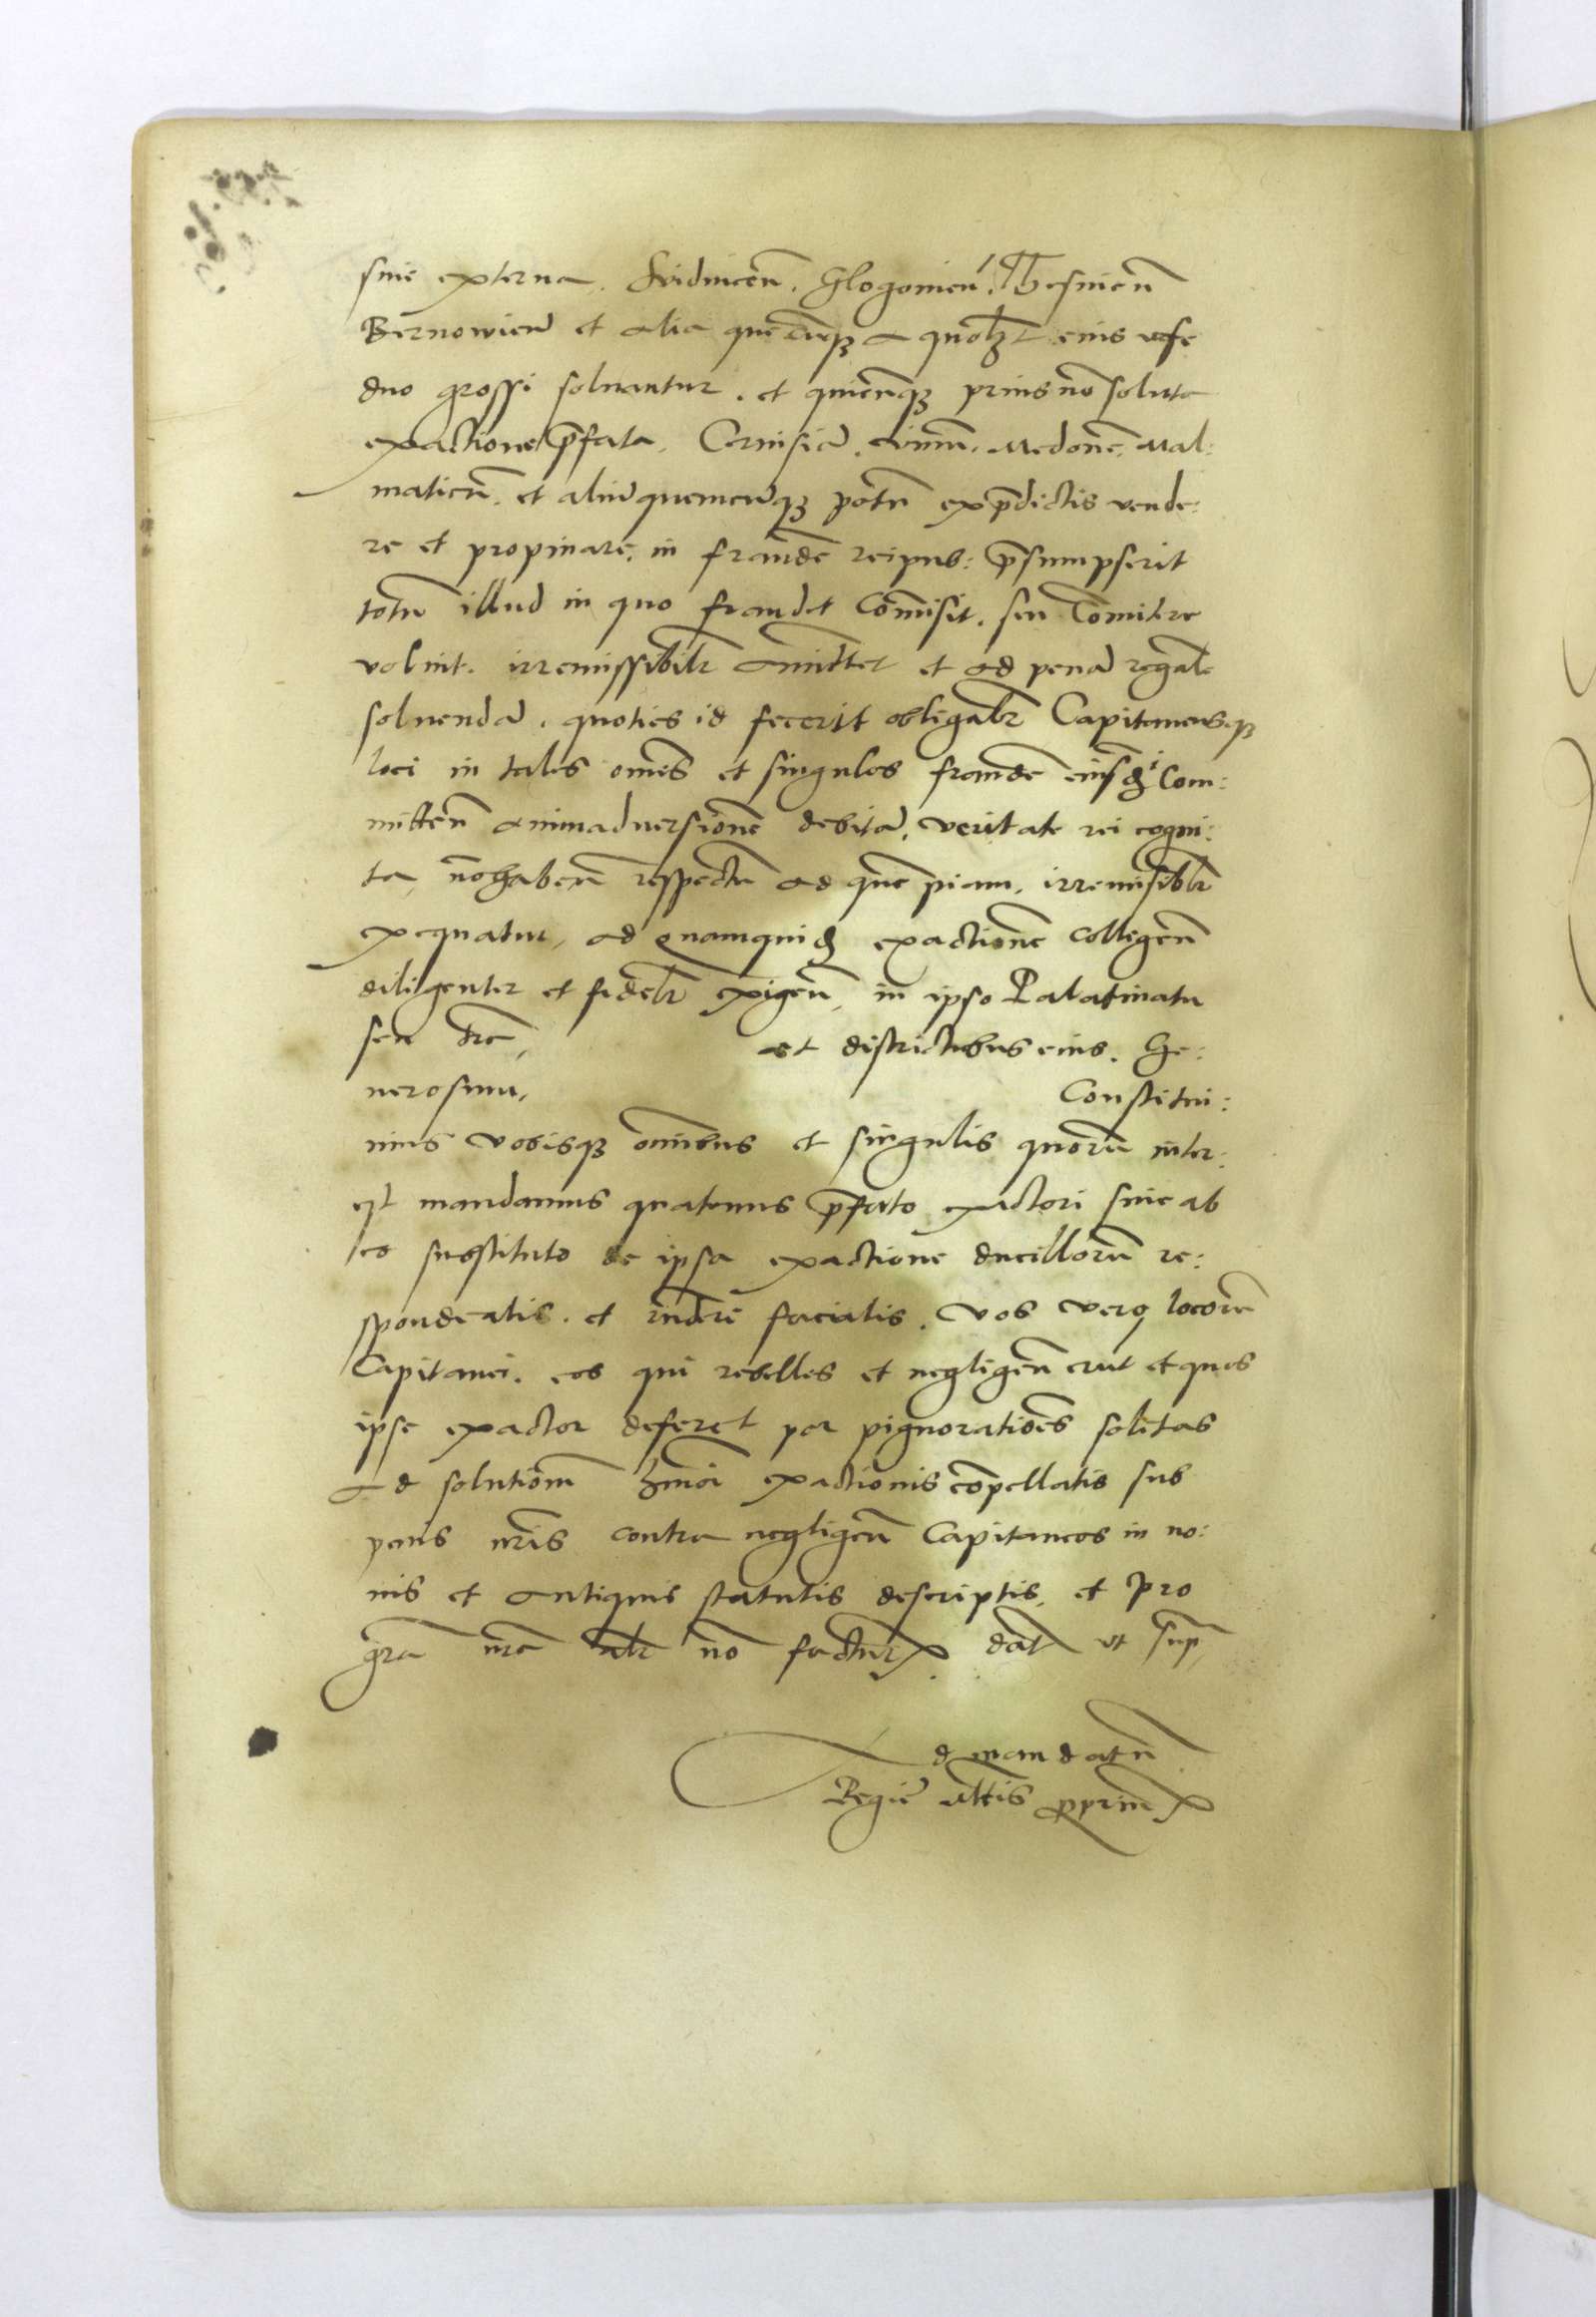 siue externa. Suidnicen̄. Glogouien̄. Thesnicen̄
Bernowien̄ et alia que cunq3 a quolz3t eius vase
duo grossi soluantur. et quicunq3 prius nō soluta
exactione p̄fata, Ceruisiā, vinum, Medonē, Mal:
maticū, et aliū quemcunq3 potū ex p̄dictis vende:
re et propinare, in fraudē reipub: p̄sumpserit
totū illud in quo fraudē Cōmisit, seu Cōmitere
voluit. irremissibilr̄ Amittet et ad penā regalē
soluendā, quoties id fecerit obligabr̄ Capitaneusq3
loci in tales om̄es et singulos fraudē eiusdi Com:
mitten̄ animaduersionē debitā, veritate rei cogni:
ta, nō haben̄ respectū ad quē piam, irremisiblr̄
exequatur, ad quamquid exactionē colligen̄
diligenter et fidelr̄ exigen̄, in ipso Palatinatu
seu t̄re, et districtibus eius. Ge:
nerosum, Constitui:
mus vobisq3 om̄ibus et singulis quorū inter:
est mandamus quatenus p̄fato exactori siue ab
eo substituto de ipsa exactione ducillorū re:
spondeatis. et r̄ndere faciatis. Vos vero locorū
Capitanei. eos qui rebelles et negligen̄ erūt et quos
ipse exactor deferet per pignoratiōes solitas
ad solutionem hm̄oi exactionis cōpellatis sub
penis nr̄is contra negligen̄ Capitaneos in no:
uis et antiquis statutis descriptis, et pro
gr̄a nr̄a alr̄ nō factur̄. dat̄ vt sup̄,
Ad mandatū
Regie Mt̄tis propriū